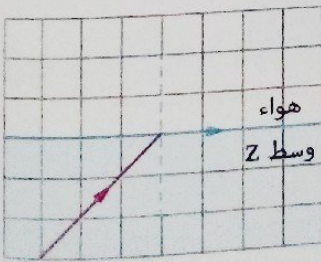 هواء
وسط Z